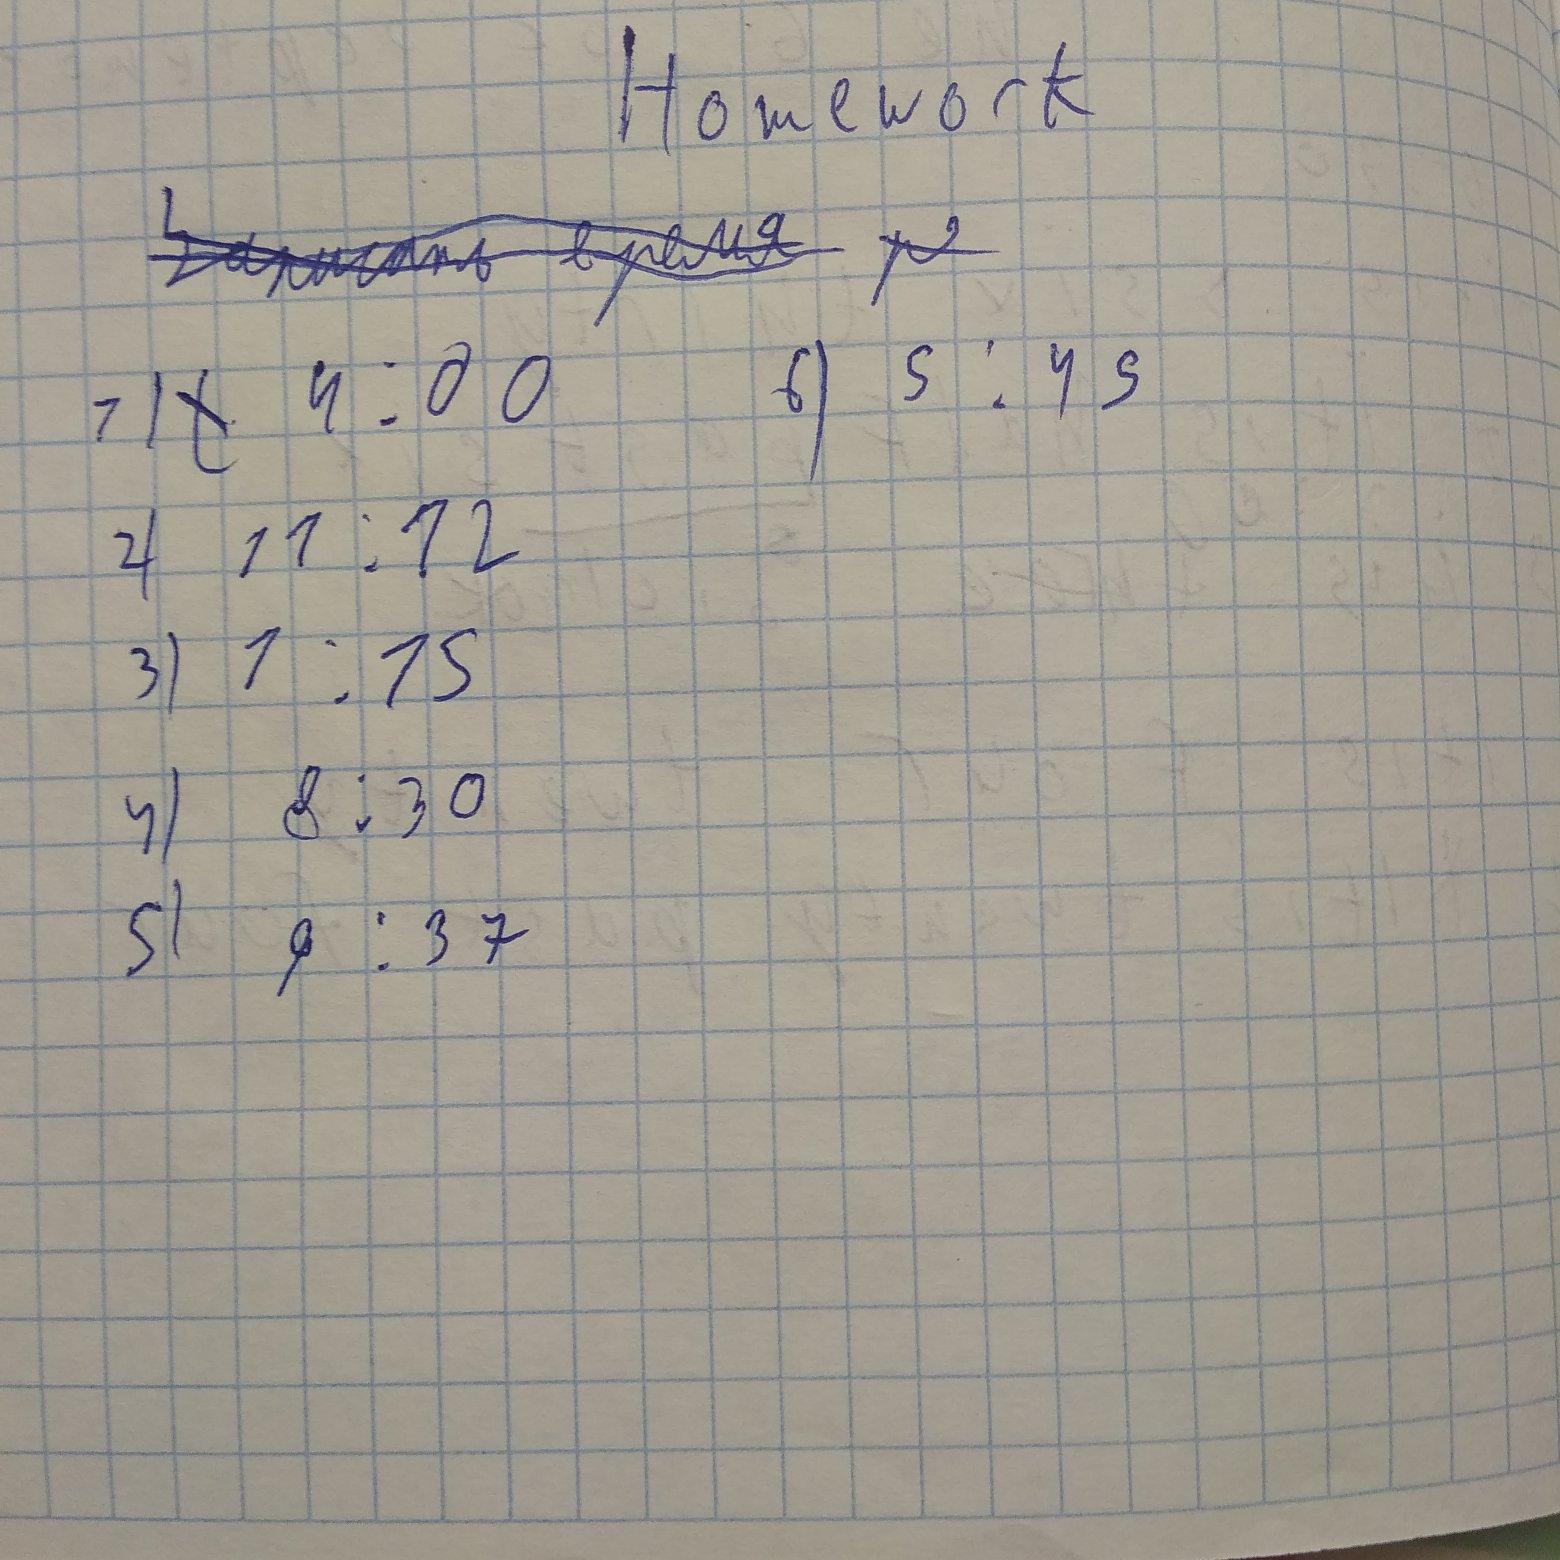 Homework
Записать время
1) 4:00
6) 5:45
2) 11:12
3) 1:15
4) 8:30
5) 9:37